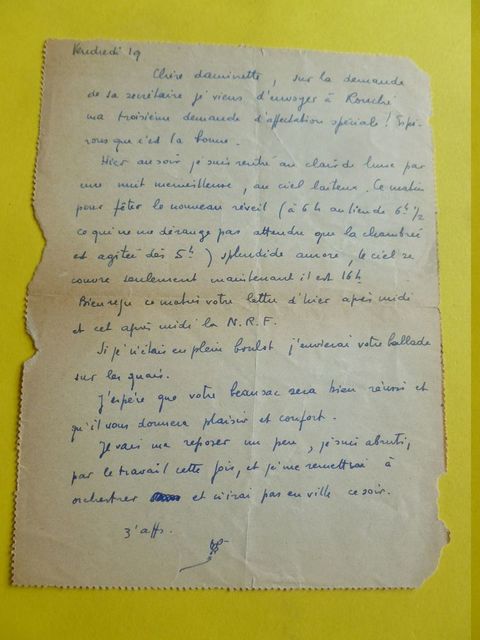 Vendredi 19
Chère daminette, sur la demande
de sa secrétaire je viens d'envoyer à Rouché
ma troisième demande d'affectation spéciale ! Espé-
rons que c'est la bonne.
Hier au soir je suis rentré au clair de lune par
une nuit merveilleuse, au ciel laiteux. Ce matin
pour fêter le nouveau réveil (à 6h au lieu de 6h 1/2
ce qui ne me dérange pas attendu que la chambrée
est agitée dès 5h) splendide aurore, le ciel se
couvre seulement maintenant il est 16h
Bien reçu ce matin votre lettre d'hier après midi
et cet après midi la N.R.F.
Si je n'étais en plein boulot j'envierai votre ballade
sur les quais.
J'espère que votre beau sac sera bien réussi et
qu'il vous donnera plaisir et confort.
Je vais me reposer un peu, je suis abruti,
par le travail cette fois, et je me remettrai à
orchestrer et n'irai pas en ville ce soir.
3' affs.